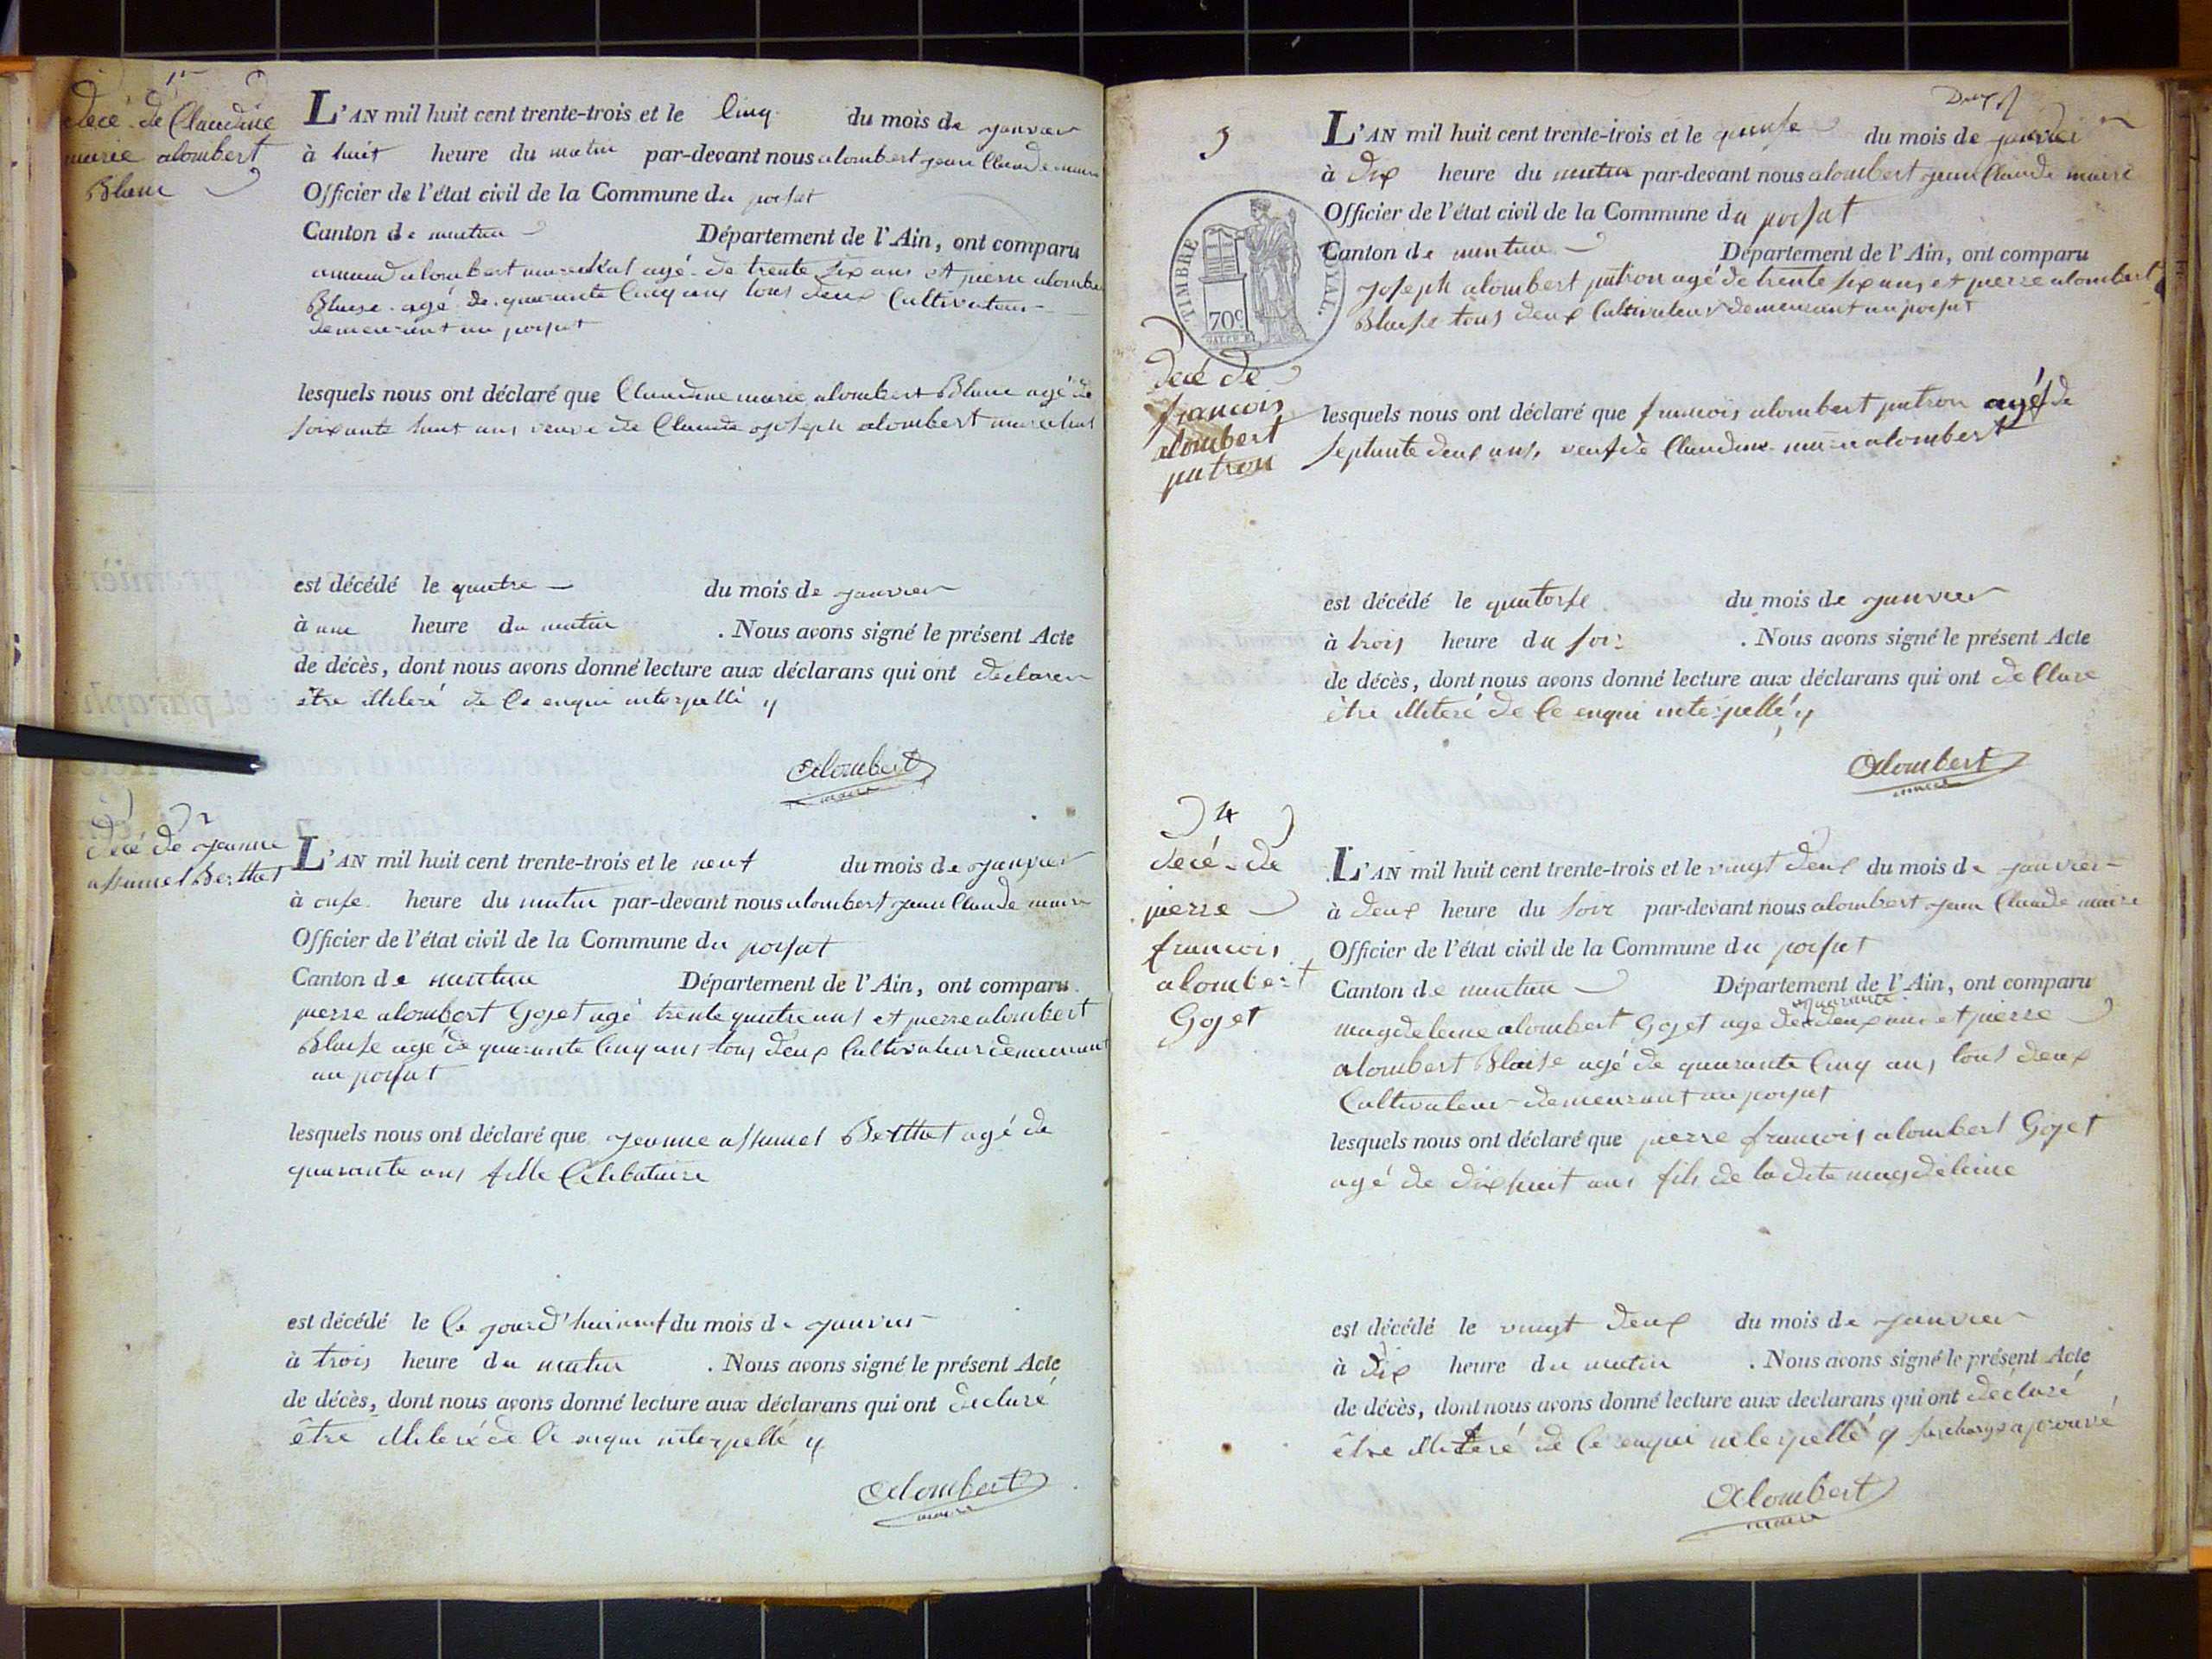 1er
décé de Claudine
marie alombert
Blanc
L'AN mil huit cent trente-trois et le Cinq du mois de janvier
à huit heure du matin par-devant nous alombert jean Claude maire
Officier de l'état civil de la Commune du poizat
Canton de nantua Département de l'Ain, ont comparu
amand alombert marechal agé de trente six ans et pierre alombert
Blaise agé de quarante Cinq ans tous deux Cultivateur
demeurant au poizat
lesquels nous ont déclaré que Claudine marie alombert Blanc agé de
soixante huit ans veuve de Claude joseph alombert marechal
est décédé le quatre du mois de janvier
à une heure du matin . Nous avons signé le présent Acte
de décès, dont nous avons donné lecture aux déclarans qui ont declarer
être illiteré de Ce enqui interpellé
Alombert
maire
2
décé de jeanne
assumel Berthet
L'AN mil huit cent trente-trois et le neuf du mois de janvier
à onse heure du matin par-devant nous alombert jean Claude maire
Officier de l'état civil de la Commune du poizat
Canton de nantua Département de l'Ain, ont comparu
pierre alombert Gojet agé trente quatre ans et pierre alombert
Blaise agé de quarante Cinq ans tous deux Cultivateur demeurant
au poizat
lesquels nous ont déclaré que jeanne assumel Berthet agé de
quarante ans fille Celibataire
est décédé le Ce jourd'hui neuf du mois de janvier
à trois heure du matin . Nous avons signé le présent Acte
de décès, dont nous avons donné lecture aux déclarans qui ont declaré
être illiteré de Ce enqui interpellé
Alombert
maire
Deux
3
TIMBRE ROYAL.
70c
décé de
francois
alombert
patron
L'AN mil huit cent trente-trois et le quinse du mois de janvier
à dix heure du matin par-devant nous alombert jean Claude maire
Officier de l'état civil de la Commune du poizat
Canton de nantua Département de l'Ain, ont comparu
joseph alombert patron agé de trente six ans et pierre alombert
Blaise tous deux Cultivateur demeurant au poizat
lesquels nous ont déclaré que francois alombert patron agé de
septante deux ans, veuf de Claudine marie alombert
est décédé le quatorse du mois de janvier
à trois heure du soir . Nous avons signé le présent Acte
de décès, dont nous avons donné lecture aux déclarans qui ont declare
être illiteré de Ce enqui interpellé
Alombert
maire
4
décé de
pierre
francois
alombert
Gojet
L'AN mil huit cent trente-trois et le vingt deux du mois de janvier
à deux heure du soir par-devant nous alombert jean Claude maire
Officier de l'état civil de la Commune du poizat
Canton de nantua Département de l'Ain, ont comparu
quarante
magdeleine alombert Gojet age de deux ans et pierre
alombert Blaise agé de quarante Cinq ans tous deux
Cultivateur demeurant au poizat
lesquels nous ont déclaré que pierre francois alombert Gojet
agé de dix huit ans fils de la dite magdeleine
est décédé le vingt deux du mois de janvier
à dix heure du matin . Nous avons signé le présent Acte
de décès, dont nous avons donné lecture aux declarans qui ont declaré
être illiteré de Ce enqui interpellé surcharge aprouvé
Alombert
maire